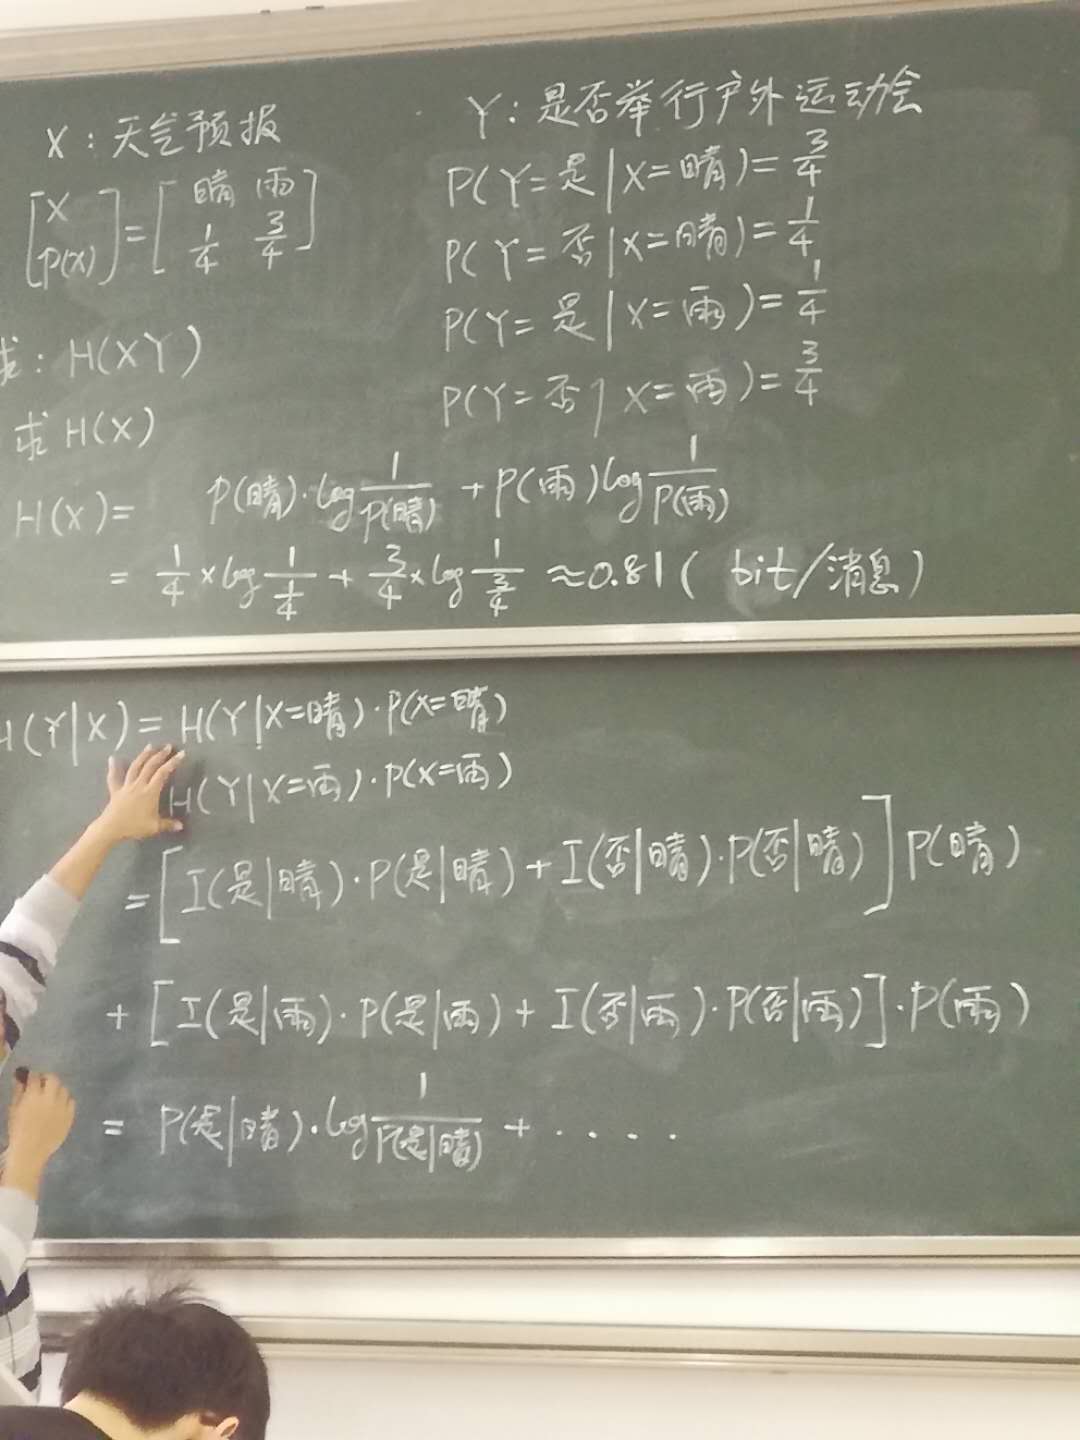 X：天气预报
[X P(X)] = [晴 雨 1/4 3/4]
求：H(XY)
求 H(X)
Y：是否举行户外运动会
P(Y=是|X=晴)=3/4
P(Y=否|X=晴)=1/4
P(Y=是|X=雨)=1/4
P(Y=否|X=雨)=3/4
H(X)= P(晴)·log 1/P(晴) + P(雨)log 1/P(雨)
= 1/4×log 1/(1/4) + 3/4×log 1/(3/4) ≈0.81( bit/消息)
H(Y|X)= H(Y|X=晴)·P(X=晴)
H(Y|X=雨)·P(X=雨)
=[I(是|晴)·P(是|晴)+I(否|晴)·P(否|晴)]P(晴)
+[I(是|雨)·P(是|雨)+I(否|雨)·P(否|雨)]·P(雨)
= P(是|晴)·log 1/P(是|晴) + ·····